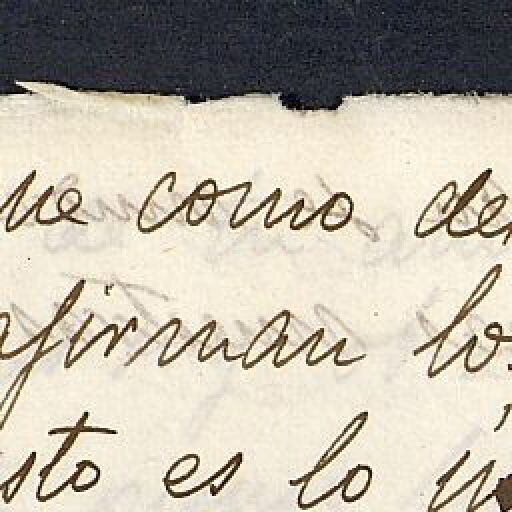 ue como de
afirman lo
sto es lo ú